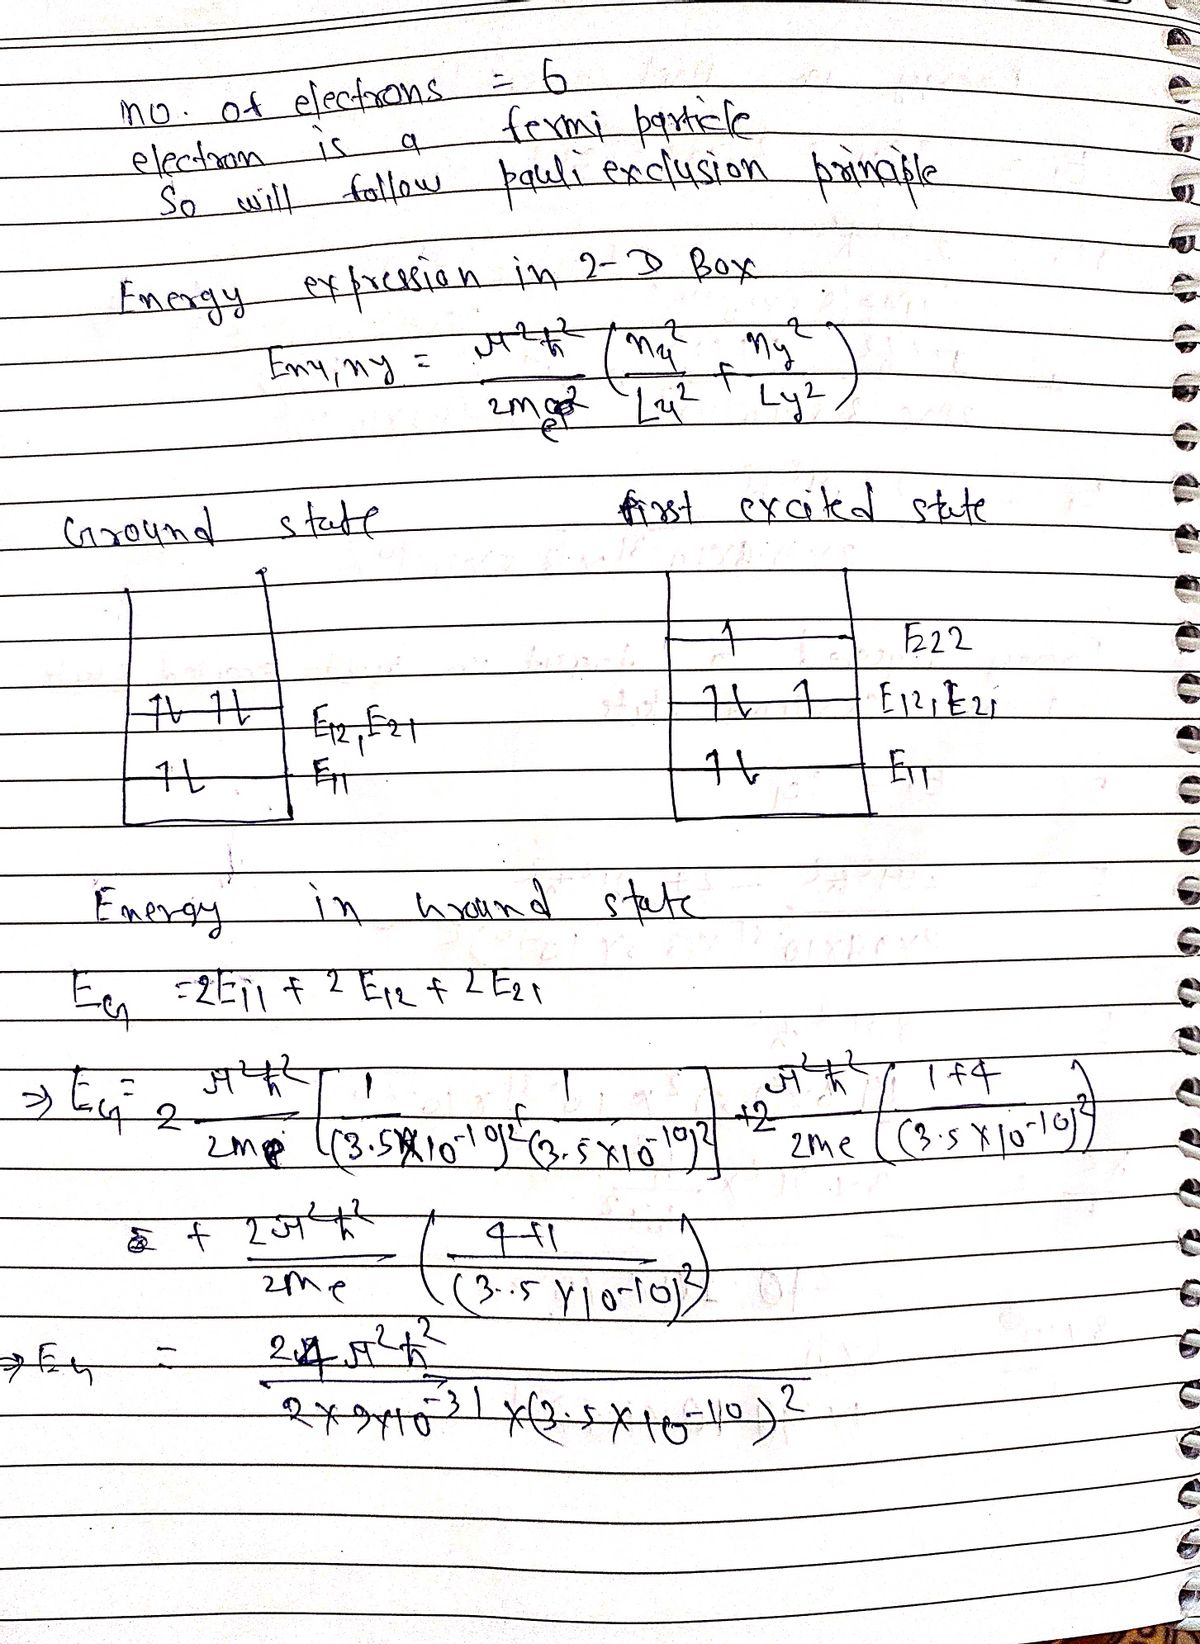 no. of electrons = 6
electron is a fermi particle
So will follow pauli exclusion principle
Energy expression in 2-D Box
Enx, ny = π²ħ² / 2me (nx² / Lx² + ny² / Ly²)
Ground state first excited state
↑ E22
↑↓ ↑↓ E12, E21 ↑↓ ↑ E12, E21
↑↓ E11 ↑↓ E11
Energy in Ground state
EG = 2E11 + 2E12 + 2E21
⇒ EG = 2 π²ħ² / 2me [1 / (3.5×10⁻¹⁰)² + 1 / (3.5×10⁻¹⁰)²] + 2 π²ħ² / 2me (1+4 / (3.5×10⁻¹⁰)²)
+ 2π²ħ² / 2me (4+1 / (3.5×10⁻¹⁰)²)
⇒ EG = 24 π²ħ² / 2×9×10⁻³¹ ×(3.5×10⁻¹⁰)²